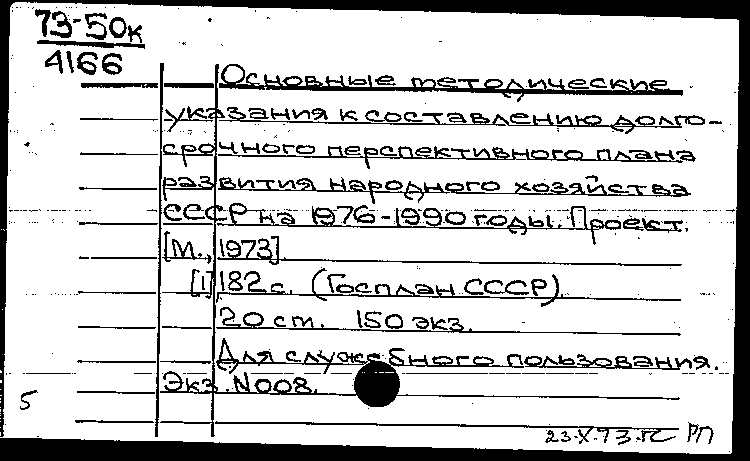 73-50к
4166
Основные методические
указания к составлению долго-
срочного перспективного плана
развития народного хозяйства
СССР на 1976-1990 годы. Проект.
[М., 1973].
[1] 182 с. (Госплан СССР).
20 см. 150 экз.
Для служебного пользования.
Экз. N008.
5
23.X.73.
РП